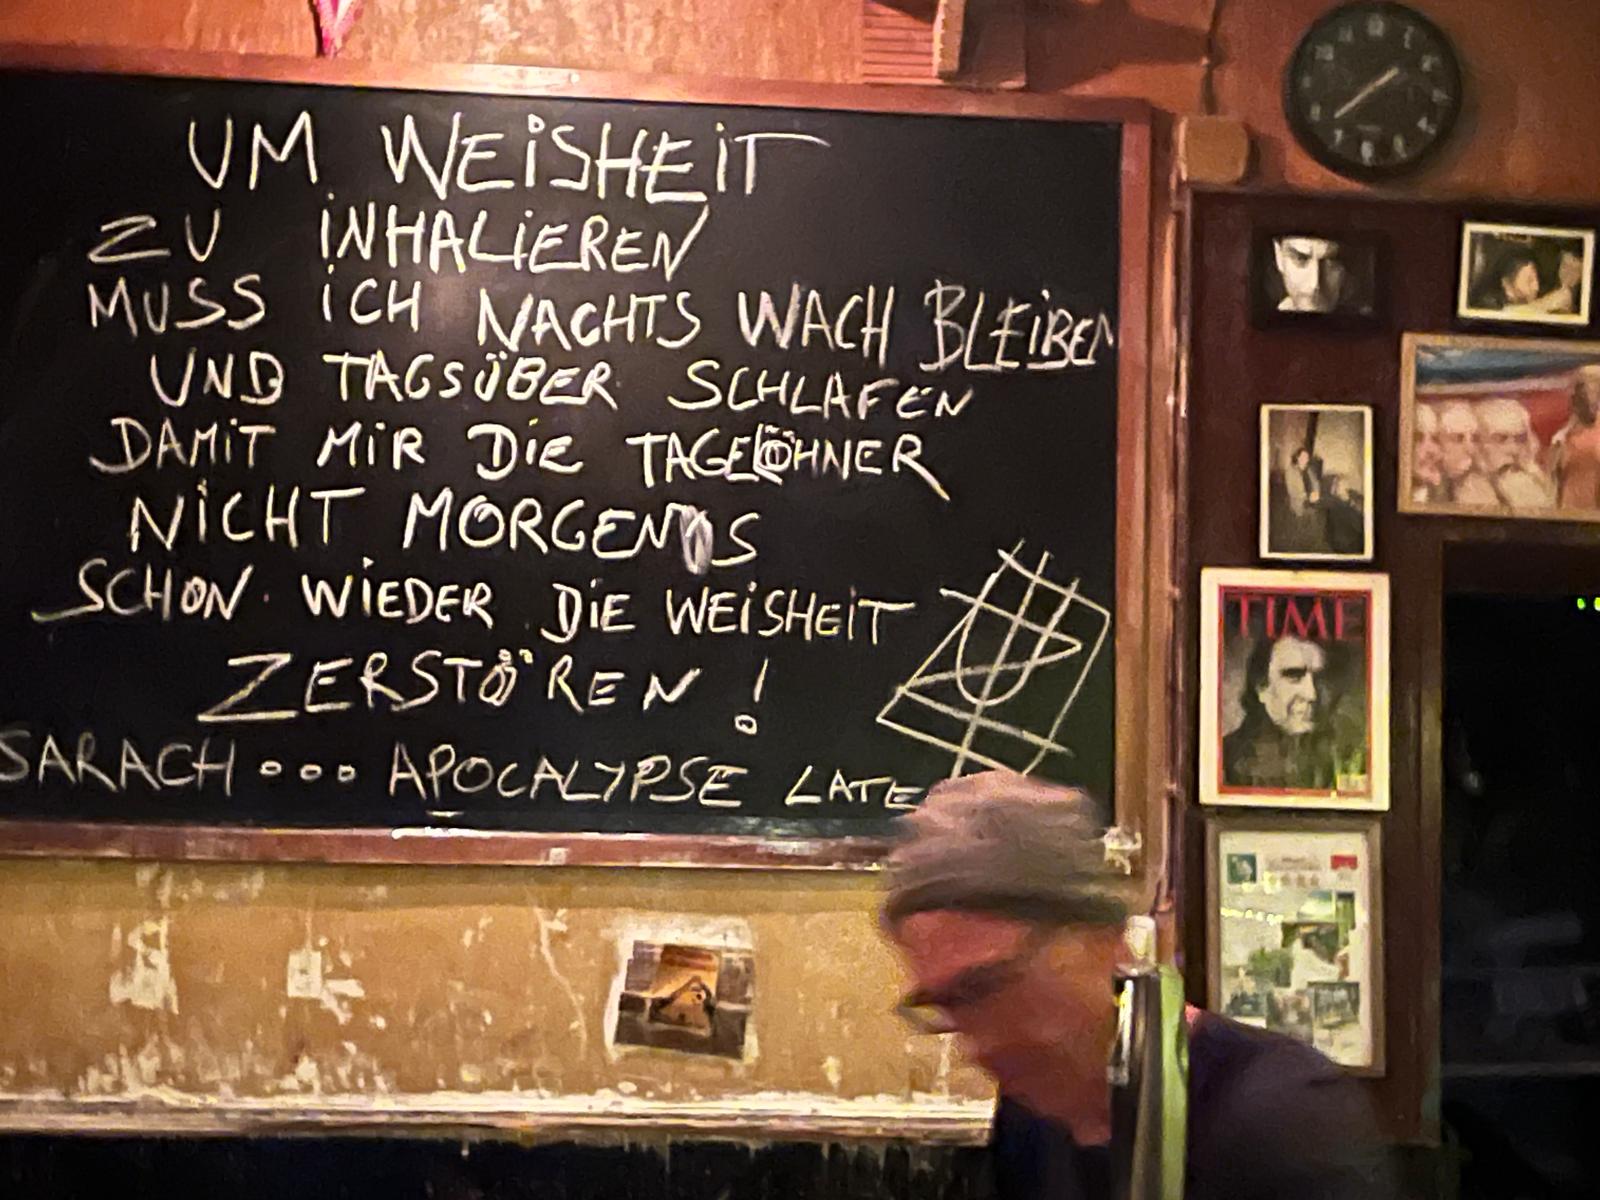 UM WEISHEIT
ZU INHALIEREN
MUSS ICH NACHTS WACH BLEIBEN
UND TAGSÜBER SCHLAFEN
DAMIT MIR DIE TAGELÖHNER
NICHT MORGENS
SCHON WIEDER DIE WEISHEIT
ZERSTÖREN!
SARACH ... APOCALYPSE LATE
TIME